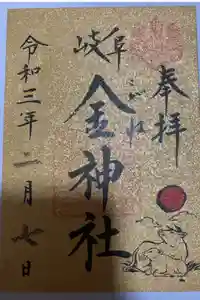 奉拝
岐阜
こがね
金神社
令和三年二月七日